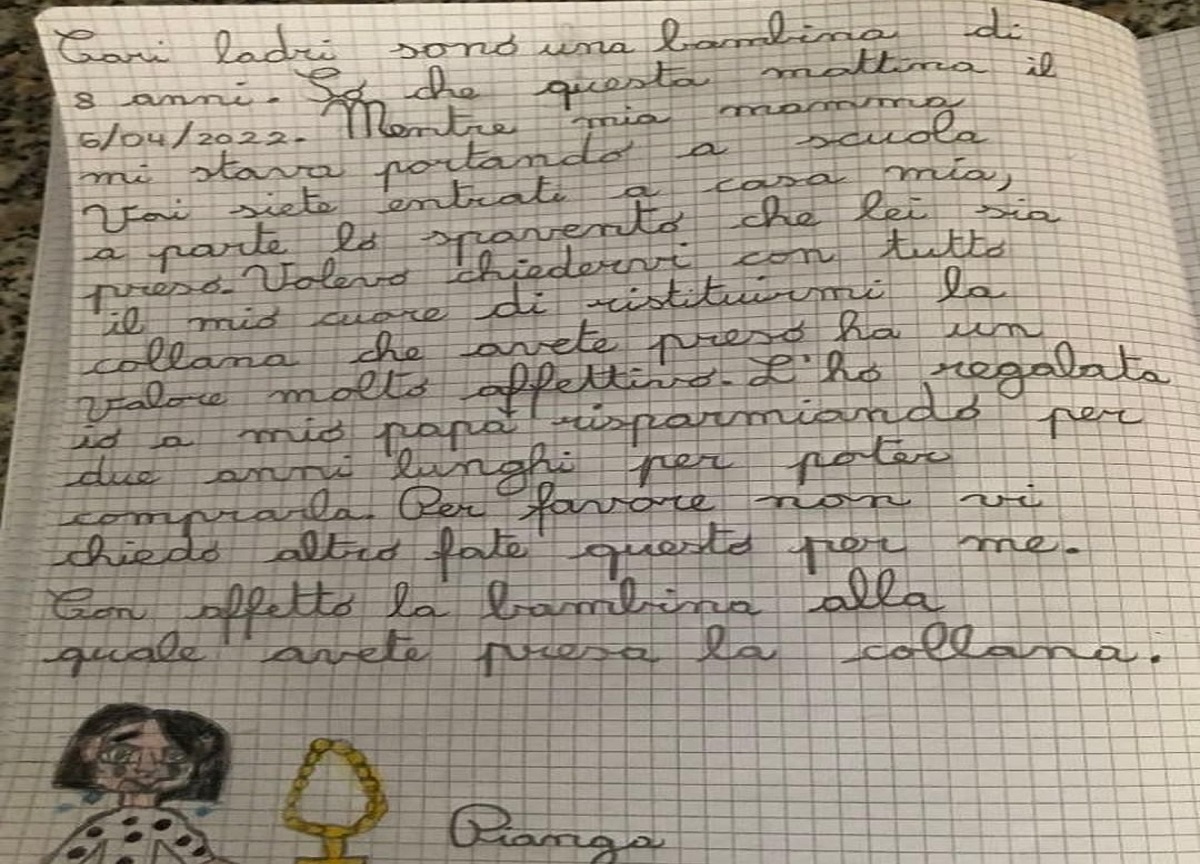 Cari ladri sono una bambina di
8 anni. So che questa mattina il
5/04/2022. Mentre mia mamma
mi stava portando a scuola
Voi siete entrati a casa mia,
a parte lo spavento che lei sia
preso. Volevo chiedervi con tutto
il mio cuore di ristituirmi la
collana che avete preso ha un
valore molto affettivo. L'ho regalata
io a mio papà risparmiando per
due anni lunghi per poter
comprarla. Per favore non vi
chiedo altro fate questo per me.
Con affetto la bambina alla
quale avete presa la collana.
Piango